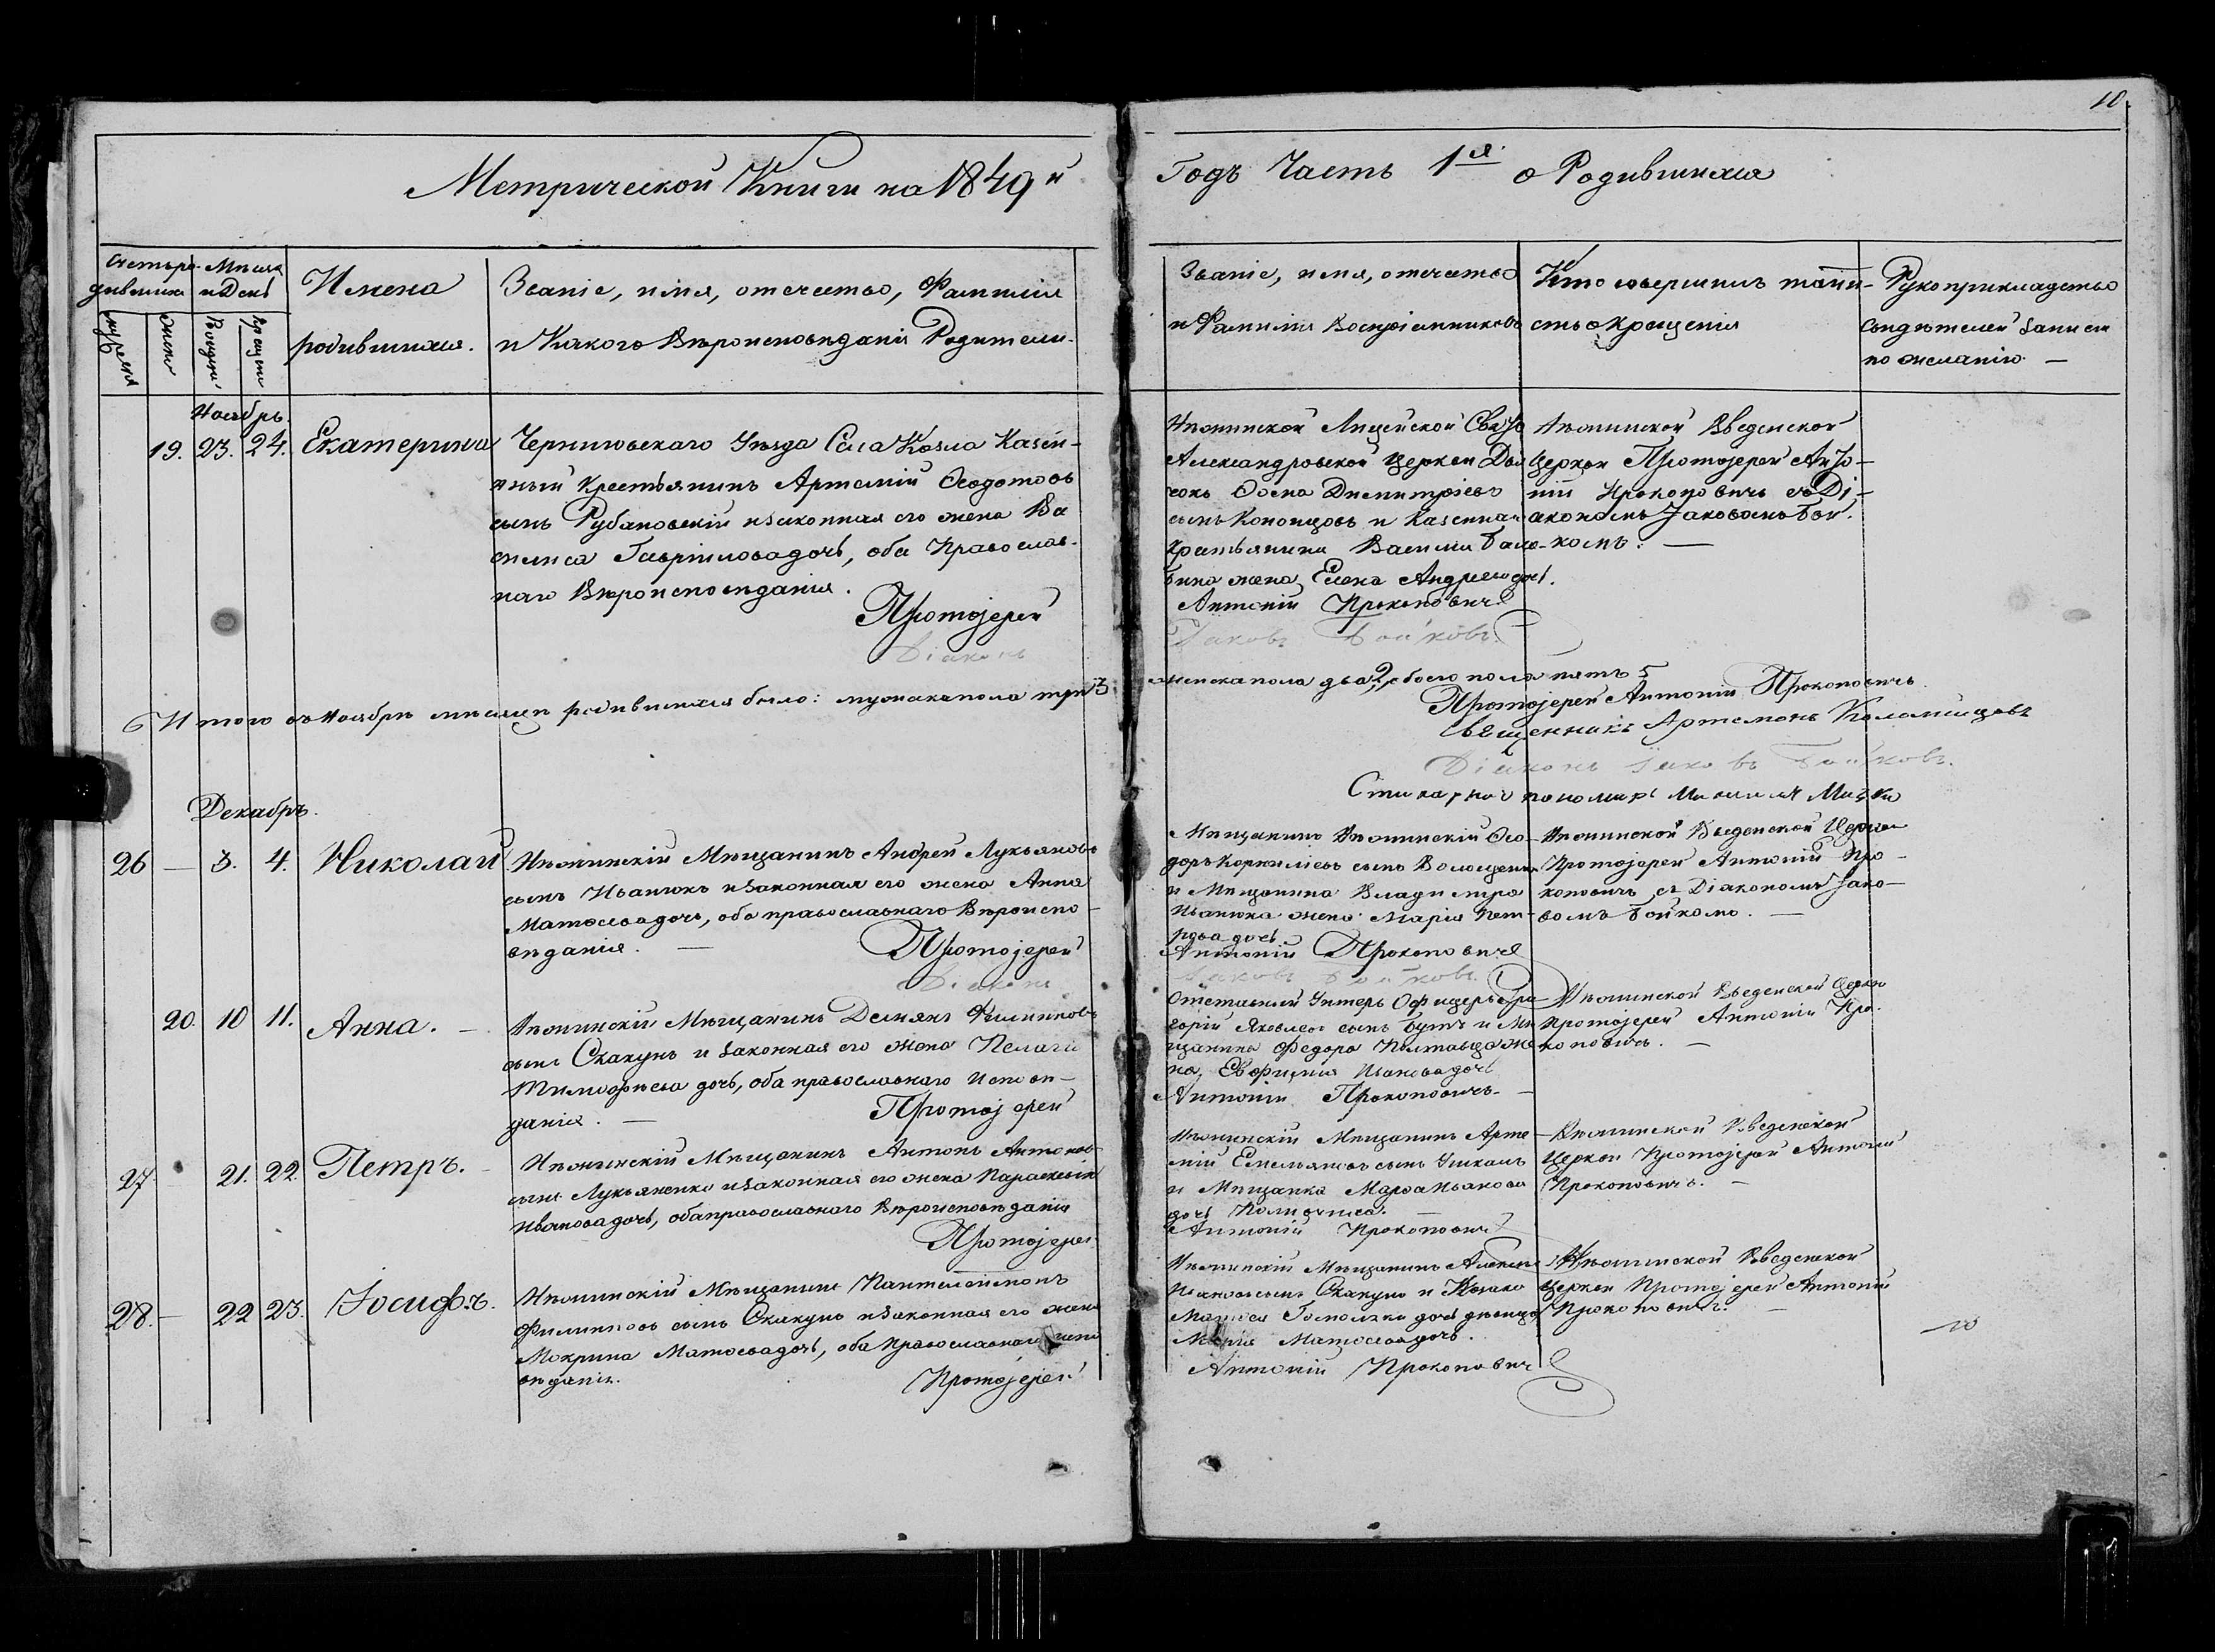 10
Метрической Книги на 1849й
Годъ Часть 1я о Родившихся
Счетъ родившихся
Мѣсяцъ и День
Имена родившихся.
Званіе, имя, отечество, Фамилія
и Какого Вѣроисповѣданія Родители.
Званіе, имя, отечество
и Фамилія Воспріемниковъ
Кто совершилъ таин-
ство Крещенія
Рукоприкладство
свидѣтелей записи
по желанію. —
Ноябрь.
19. 23. 24. Екатерина
Черниговскаго Уѣзда Села Козла Казен-
ный Крестьянинъ Артемій Ѳеодотовъ
сынъ Рубановскій и законная его жена Ва
силиса Гавріилова дочь, оба Православ-
наго Вѣроисповѣданія.
Протоіерей
Діаконъ
Нѣжинской Лицейской Свято
Александровской Церкви Дья
чокъ Дмитріевъ
сынъ и Казеннаго
Крестьянина Василія
жена Елена Андреева дочь.
Антоній Прокоповичъ
Іаковъ Бойковъ.
Нѣжинской Введенской
Церкви Протоіерей Анто-
ній Прокоповичъ съ Ді-
акономъ Іаковомъ Бой-
комъ. —
Итого въ Ноябрѣ мѣсяцѣ родившихся было: мужска пола три 3
женска пола два 2, обоего пола пять 5
Протоіерей Антоній Прокоповичъ
Священникъ Артемонъ Коломійцовъ
Діаконъ Іаковъ Бойковъ.
Стихарный пономарь
Декабрь.
26 — 3. 4. Николай
Нѣжинскій Мѣщанинъ Андрей Лукьяновъ
сынъ Иванюкъ и законная его жена Анна
Матѳеева дочь, оба православнаго Вѣроиспо-
вѣданія. —
Протоіерей
Діаконъ
Мѣщанинъ Нѣжинскій Ѳео-
доръ Корниліевъ сынъ
и Мѣщанина Владиміра
Иванюка жена Марія Пет-
рова дочь
Антоній Прокоповичъ
Іаковъ Бойковъ.
Нѣжинской Введенской Церкви
Протоіерей Антоній Про-
коповичъ съ Діакономъ Іако-
вомъ Бойкомъ. —
20. 10 11. Анна. —
Нѣжинскій Мѣщанинъ Демьянъ Филиповъ
сынъ Скакунъ и законная его жена Пелагія
Тимофѣева дочь, оба православнаго Исповѣ-
данія. —
Протоіерей
Отставный Унтеръ Офицеръ Гри-
горій Яковлевъ сынъ Бутъ и Мѣ
щанина Федора Полтавца же
на, Евфимія Иванова дочь
Антоній Прокоповичъ —
Нѣжинской Введенской Церкви
Протоіерей Антоній Про-
коповичъ. —
27 21. 22. Петръ. —
Нѣжинскій Мѣщанинъ Антонъ Антоновъ
сынъ Лукьяненко и законная его жена Параскевія
Иванова дочь, оба православнаго Вѣроисповѣданія
Протоіерей
Нѣжинскій Мѣщанинъ Арте-
мій Емельяновъ сынъ
и Мѣщанка Марѳа Иванова
дочь
Антоній Прокоповичъ
Нѣжинской Введенской
Церкви Протоіерей Антоній
Прокоповичъ. —
28. — 22 23. Іосифъ.
Нѣжинскій Мѣщанинъ Пантелеймонъ
Филиповъ сынъ Скакунъ и законная его жена
Мокрина Матѳеева дочь, оба Православнаго испо
вѣданія.
Протоіерей
Нѣжинскій Мѣщанинъ Алексѣй
Ивановъ сынъ Скакунъ и Козака
Матѳея дочь дѣвица
Марія Матѳеева дочь.
Антоній Прокоповичъ
Нѣжинской Введенской
Церкви Протоіерей Антоній
Прокоповичъ. —